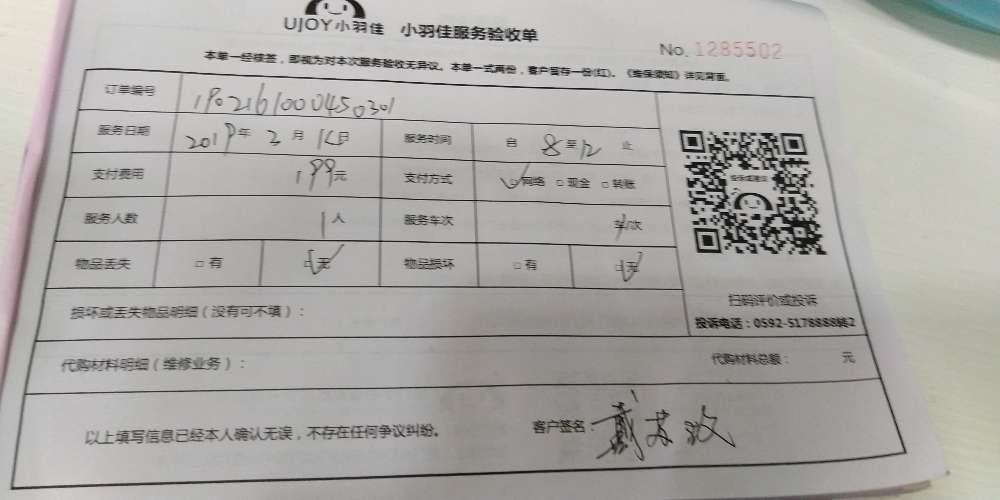 UJOY小羽佳 小羽佳服务验收单
No. 1285502
本单一经核签，即视为对本次服务验收无异议。本单一式两份，客户留存一份(红)。《维保须知》详见背面。
订单编号 1902161000450301
服务日期 2019年2月16日 服务时间 自8至12止
支付费用 199元 支付方式 ☑网络 □现金 □转账
服务人数 1人 服务车次 车/次
物品丢失 □有 ☑无 物品损坏 □有 ☑无
扫码评价或投诉
投诉电话：0592-5178888转2
损坏或丢失物品明细（没有可不填）：
代购材料明细（维修业务）： 代购材料总额： 元
以上填写信息已经本人确认无误，不存在任何争议纠纷。 客户签名：戴